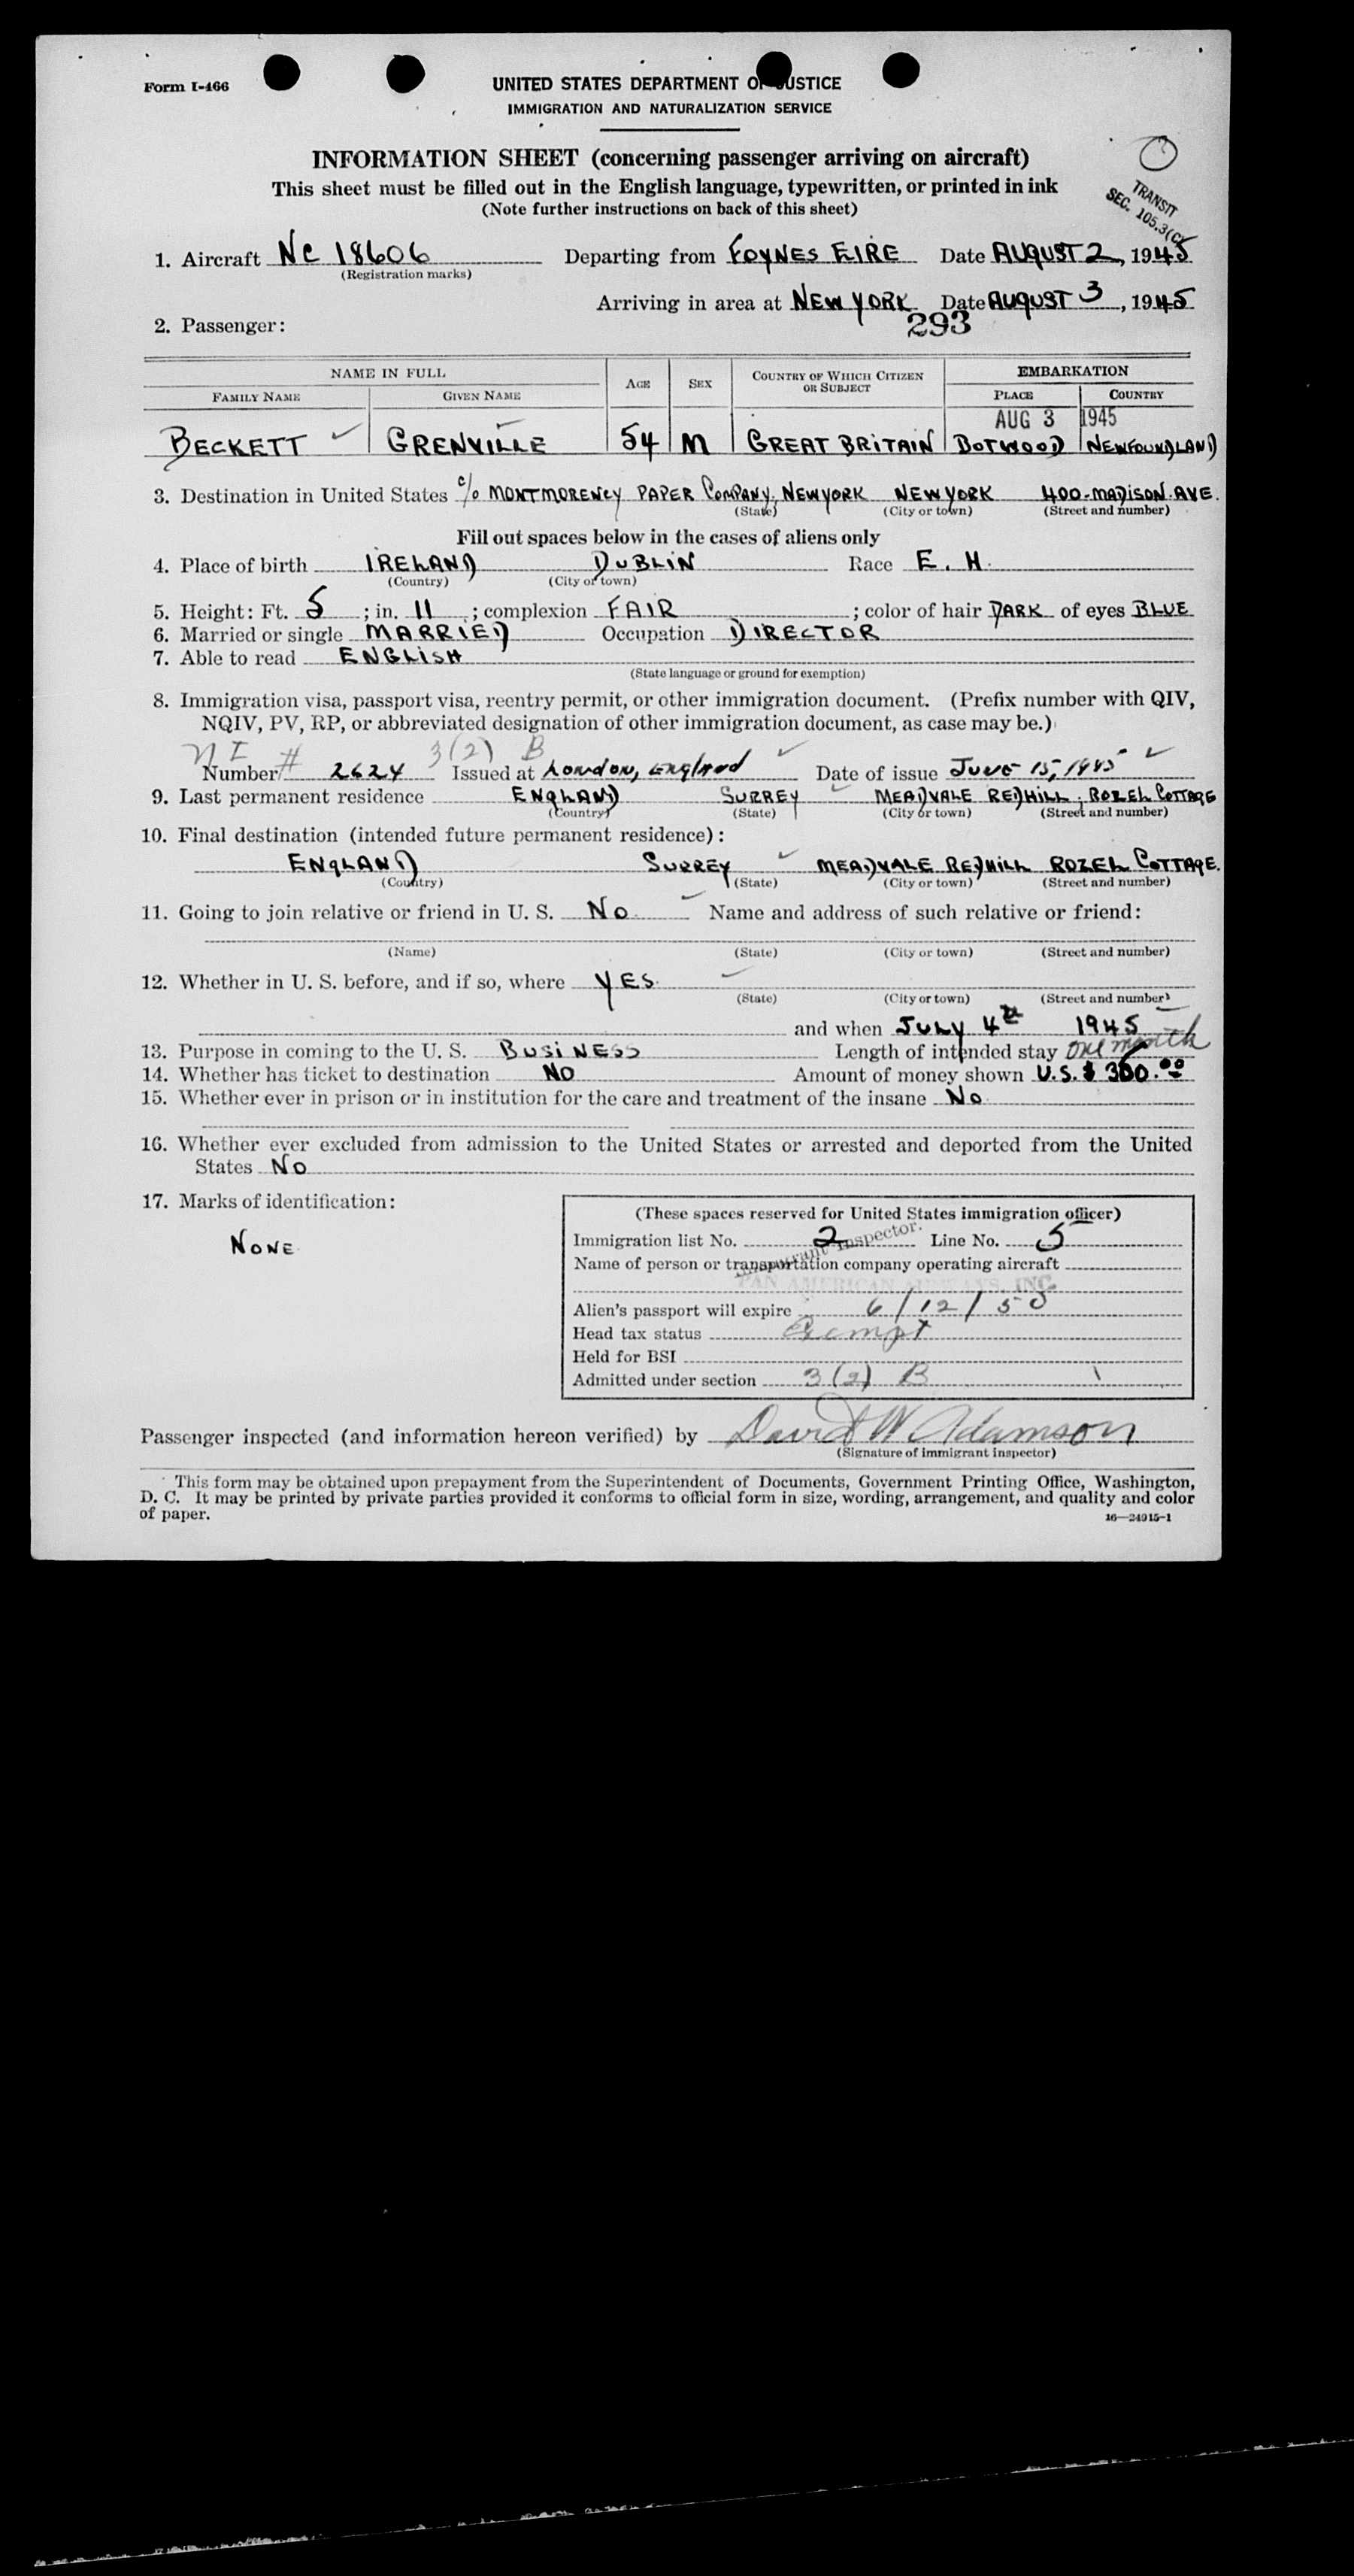 Form I-466
UNITED STATES DEPARTMENT OF JUSTICE
IMMIGRATION AND NATURALIZATION SERVICE
INFORMATION SHEET (concerning passenger arriving on aircraft)
This sheet must be filled out in the English language, typewritten, or printed in ink
(Note further instructions on back of this sheet)
TRANSIT
SEC. 105.3(C)
1. Aircraft NC 18606 Departing from FOYNES EIRE Date AUGUST 2, 1945
(Registration marks)
Arriving in area at NEW YORK Date AUGUST 3, 1945
293
2. Passenger:
NAME IN FULL AGE SEX COUNTRY OF WHICH CITIZEN OR SUBJECT EMBARKATION
FAMILY NAME GIVEN NAME PLACE COUNTRY
AUG 3 1945
BECKETT GRENVILLE 54 M GREAT BRITAIN BOTWOOD NEWFOUNDLAND
3. Destination in United States c/o MONTMORENCY PAPER COMPANY, NEW YORK NEW YORK 400-MADISON AVE.
(State) (City or town) (Street and number)
Fill out spaces below in the cases of aliens only
4. Place of birth IRELAND DUBLIN Race E. H.
(Country) (City or town)
5. Height: Ft. 5; in. 11; complexion FAIR; color of hair DARK of eyes BLUE
6. Married or single MARRIED Occupation DIRECTOR
7. Able to read ENGLISH
(State language or ground for exemption)
8. Immigration visa, passport visa, reentry permit, or other immigration document. (Prefix number with QIV,
NQIV, PV, RP, or abbreviated designation of other immigration document, as case may be.)
N I # 3(2) B
Number 2624 Issued at London, England Date of issue June 15, 1945
9. Last permanent residence ENGLAND SURREY MEADVALE REDHILL. ROZEL COTTAGE
(Country) (State) (City or town) (Street and number)
10. Final destination (intended future permanent residence):
ENGLAND SURREY MEADVALE REDHILL ROZEL COTTAGE.
(Country) (State) (City or town) (Street and number)
11. Going to join relative or friend in U. S. NO. Name and address of such relative or friend:
(Name) (State) (City or town) (Street and number)
12. Whether in U. S. before, and if so, where YES.
(State) (City or town) (Street and number)
and when JULY 4th 1945
13. Purpose in coming to the U. S. BUSINESS Length of intended stay One month
14. Whether has ticket to destination NO Amount of money shown U.S. $ 300.00
15. Whether ever in prison or in institution for the care and treatment of the insane NO.
16. Whether ever excluded from admission to the United States or arrested and deported from the United
States NO
17. Marks of identification:
NONE
(These spaces reserved for United States immigration officer)
Immigration list No. 2 Line No. 5
Immigrant Inspector.
Name of person or transportation company operating aircraft
PAN AMERICAN AIRWAYS, INC.
Alien's passport will expire 6/12/50
Head tax status Exempt
Held for BSI
Admitted under section 3(2) B
Passenger inspected (and information hereon verified) by David W Adamson
(Signature of immigrant inspector)
This form may be obtained upon prepayment from the Superintendent of Documents, Government Printing Office, Washington,
D. C. It may be printed by private parties provided it conforms to official form in size, wording, arrangement, and quality and color
of paper.
16—24915-1